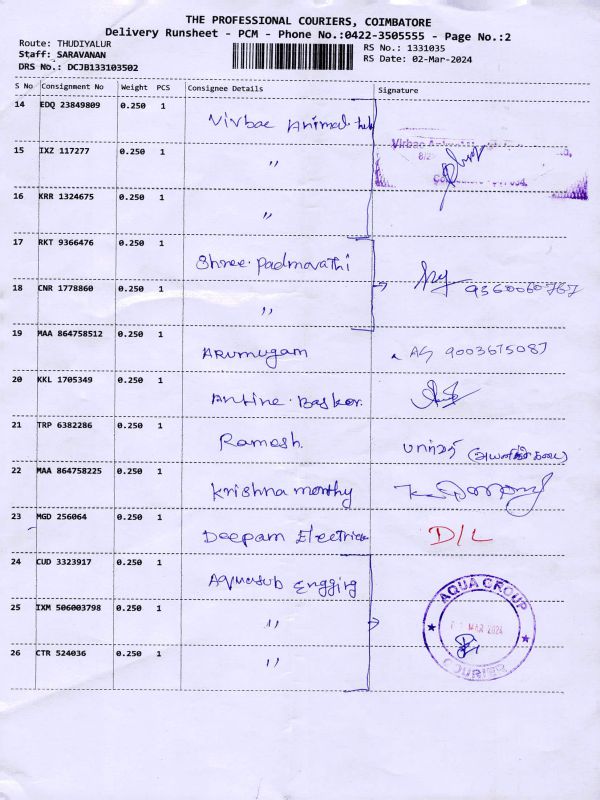 THE PROFESSIONAL COURIERS, COIMBATORE
Delivery Runsheet - PCM - Phone No.:0422-3505555 - Page No.:2
Route: THUDIYALUR
RS No.: 1331035
Staff: SARAVANAN
RS Date: 02-Mar-2024
DRS No.: DCJB133103502
S No Consignment No Weight PCS Consignee Details Signature
14 EDQ 23849809 0.250 1 Virbac Animal
15 IXZ 117277 0.250 1 "
16 KRR 1324675 0.250 1 "
17 RKT 9366476 0.250 1 Shree. Padmavathi
18 CNR 1778860 0.250 1 " 9360060767
19 MAA 864758512 0.250 1 Arumugam 9003675087
20 KKL 1705349 0.250 1 Antine. Baskar.
21 TRP 6382286 0.250 1 Ramesh.
22 MAA 864758225 0.250 1 Krishna morthy
23 MGD 256064 0.250 1 Deepam Electrical D/L
24 CUD 3323917 0.250 1 Aquasub Engging
25 IXM 506003798 0.250 1 "
26 CTR 524036 0.250 1 "
AQUA GROUP
MAR 2024
COURIER